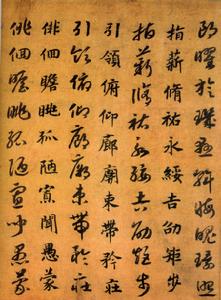 朗曜璇璣懸斡晦魄環照
指薪脩祜永綏吉劭矩步
指薪脩祜永綏吉劭矩步
引領俯仰廊廟束帶矜莊
引領俯仰廊廟束帶矜莊
俳佪瞻眺孤陋寡聞愚蒙
俳佪瞻眺孤陋寡聞愚蒙